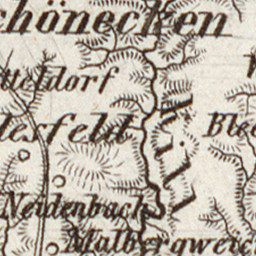 chönecken
tteldorf
lesfeld
Blee
Neidenbach
Malbergweich